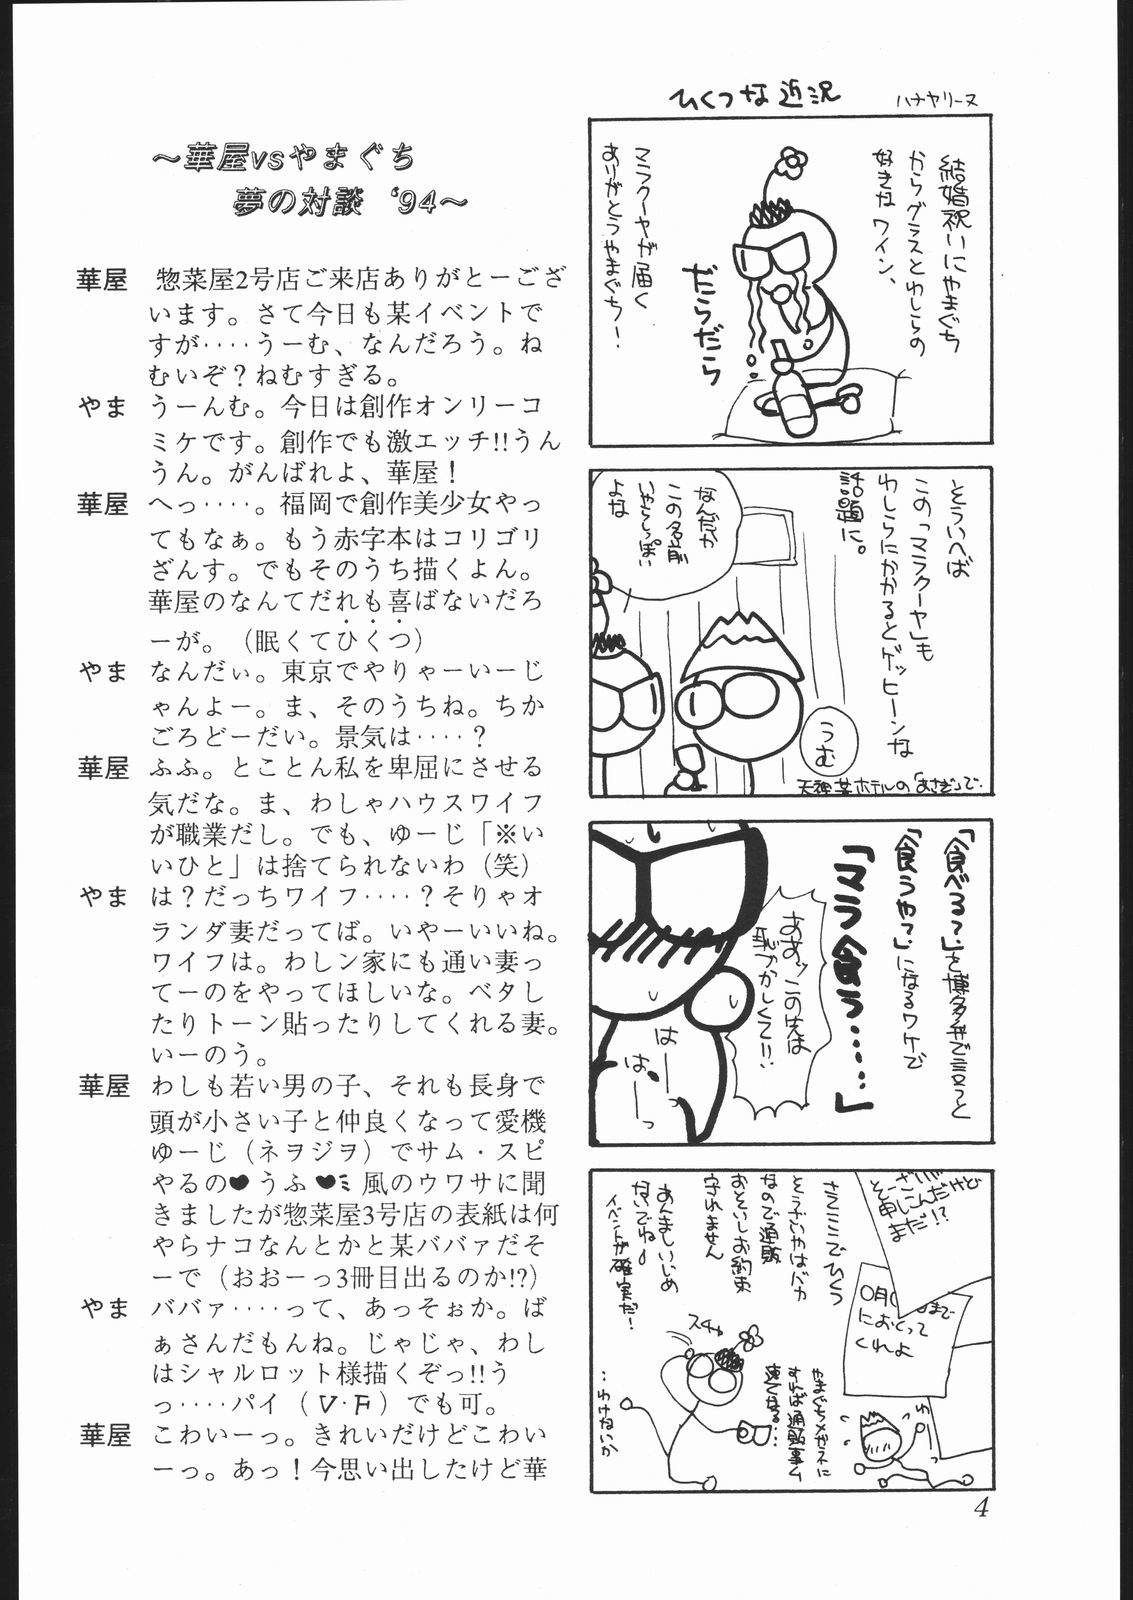 ～華屋vsやまぐち
夢の対談 '94～
華屋 惣菜屋2号店ご来店ありがとーござ
います。さて今日も某イベントで
すが‥‥うーむ、なんだろう。ね
むいぞ？ねむすぎる。
やま うーんむ。今日は創作オンリーコ
ミケです。創作でも激エッチ!!うん
うん。がんばれよ、華屋！
華屋 へっ‥‥。福岡で創作美少女やっ
てもなぁ。もう赤字本はコリゴリ
ざんす。でもそのうち描くよん。
華屋のなんてだれも喜ばないだろ
ーが。（眠くてひくつ）
やま なんだぃ。東京でやりゃーいーじ
ゃんよー。ま、そのうちね。ちか
ごろどーだい。景気は‥‥？
華屋 ふふ。とことん私を卑屈にさせる
気だな。ま、わしゃハウスワイフ
が職業だし。でも、ゆーじ「※い
いひと」は捨てられないわ（笑）
やま は？だっちワイフ‥‥？そりゃオ
ランダ妻だってば。いやーいいね。
ワイフは。わしン家にも通い妻っ
てーのをやってほしいな。ベタし
たりトーン貼ったりしてくれる妻。
いーのう。
華屋 わしも若い男の子、それも長身で
頭が小さい子と仲良くなって愛機
ゆーじ（ネヲジヲ）でサム・スピ
やるの♥うふ♥ミ風のウワサに聞
きましたが惣菜屋3号店の表紙は何
やらナコなんとかと某ババァだそ
ーで（おおーっ3冊目出るのか!?）
やま ババァ‥‥って、あっそぉか。ば
ぁさんだもんね。じゃじゃ、わし
はシャルロット様描くぞっ!!う
っ‥‥パイ（V・F）でも可。
華屋 こわいーっ。きれいだけどこわい
ーっ。あっ！今思い出したけど華
ひくつな近況
ハナヤリーヌ
結婚祝いにやまぐち
からグラスとわしらの
好きなワイン、
マラクーヤが届く
ありがとうやまぐち！
だらだら
そういへば
この「マラクーヤ」も
わしらにかかるとゲッヒーンな
話題に。
なんだか
この名前
いやらしっぽい
よな
うむ
天神某ホテルの「あさぎ」で‥
「食べるて」と博多弁で言うと
「食うやて」になるワケで
「マラ食う‥‥」
ああッこの先は
恥ずかしくて!!
はーっ
はーっ
さてここでひくつ
そうぞいやはバカ
なので通販
おそいしお約束
守れません
あんましいじめ
ないでね
イベントが確実だ！
スチャ
やまぐちメガネに
すれば通販事ム
速くなる‥
‥わけないか
まだ!?
○月
まで
におくって
くれよ
4